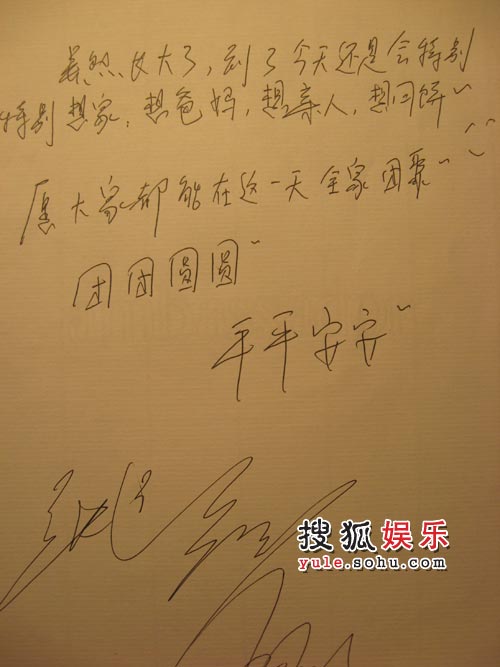 虽然长大了，到了今天还是会特别
特别想家，想爸妈，想亲人，想月饼~
愿大家都能在这一天全家团聚~
团团圆圆~
平平安安~
搜狐娱乐
yule.sohu.com